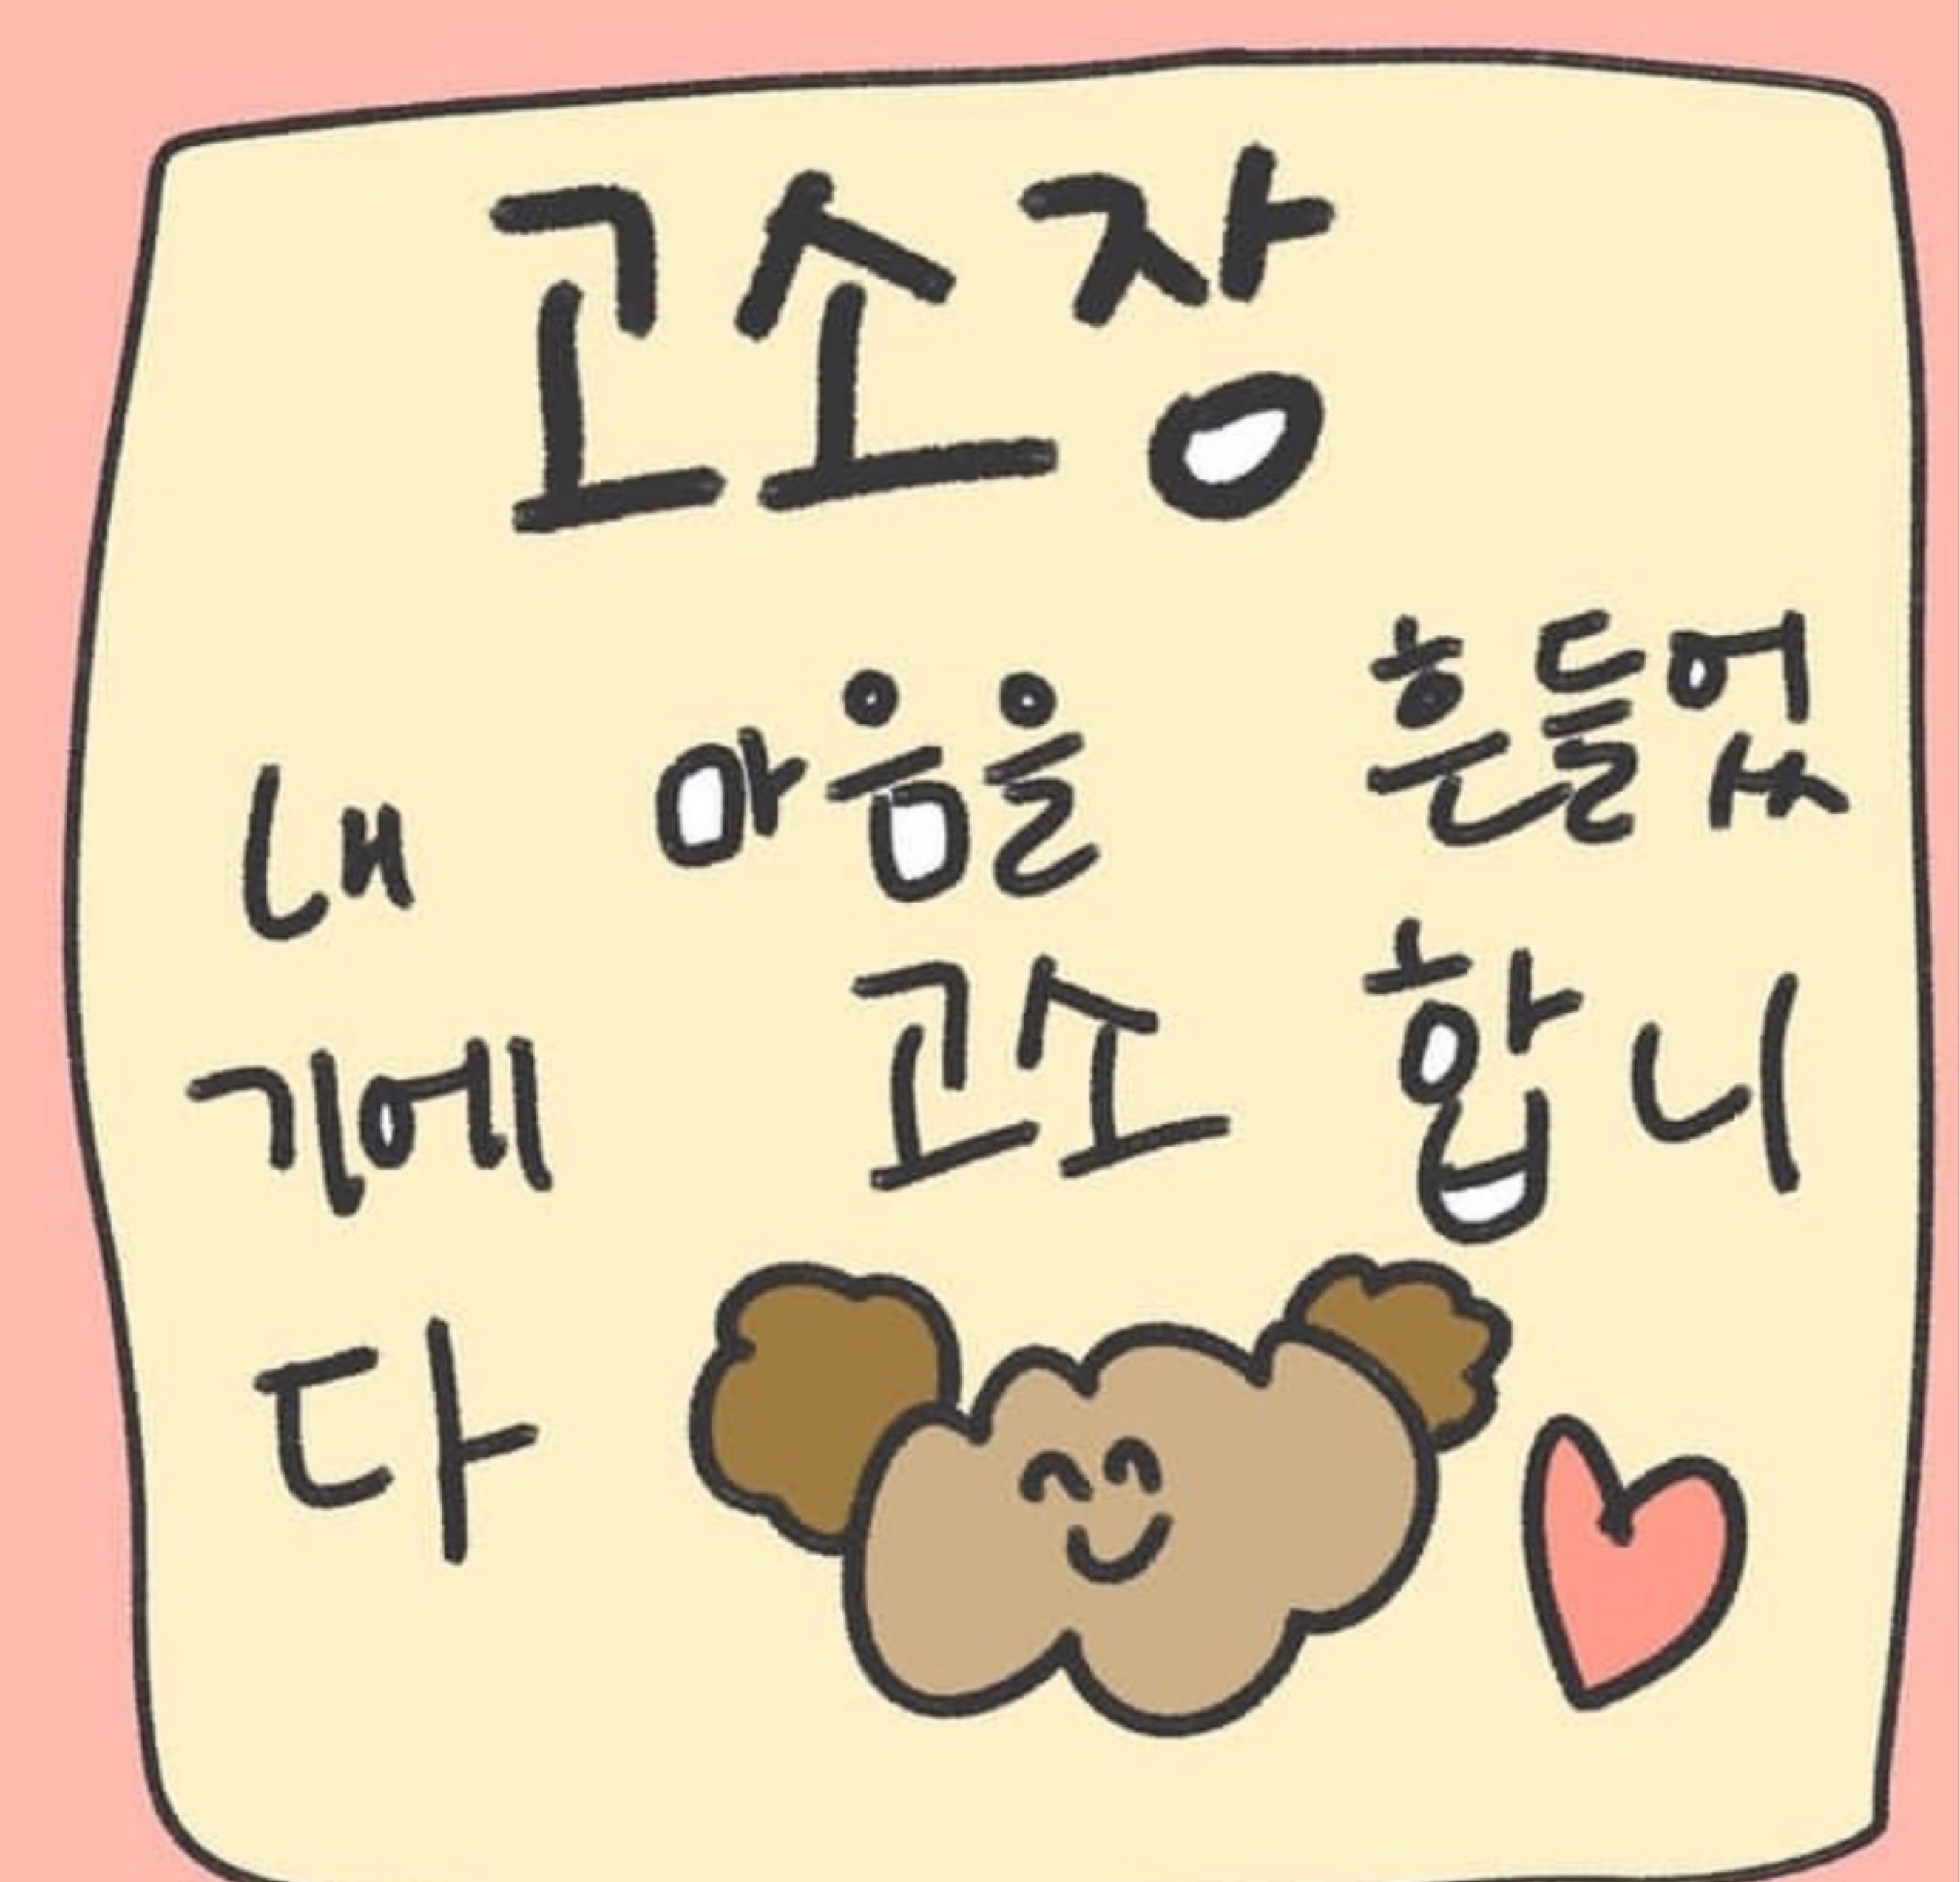 고소장
내 마음을 흔들었
기에 고소 합니
다